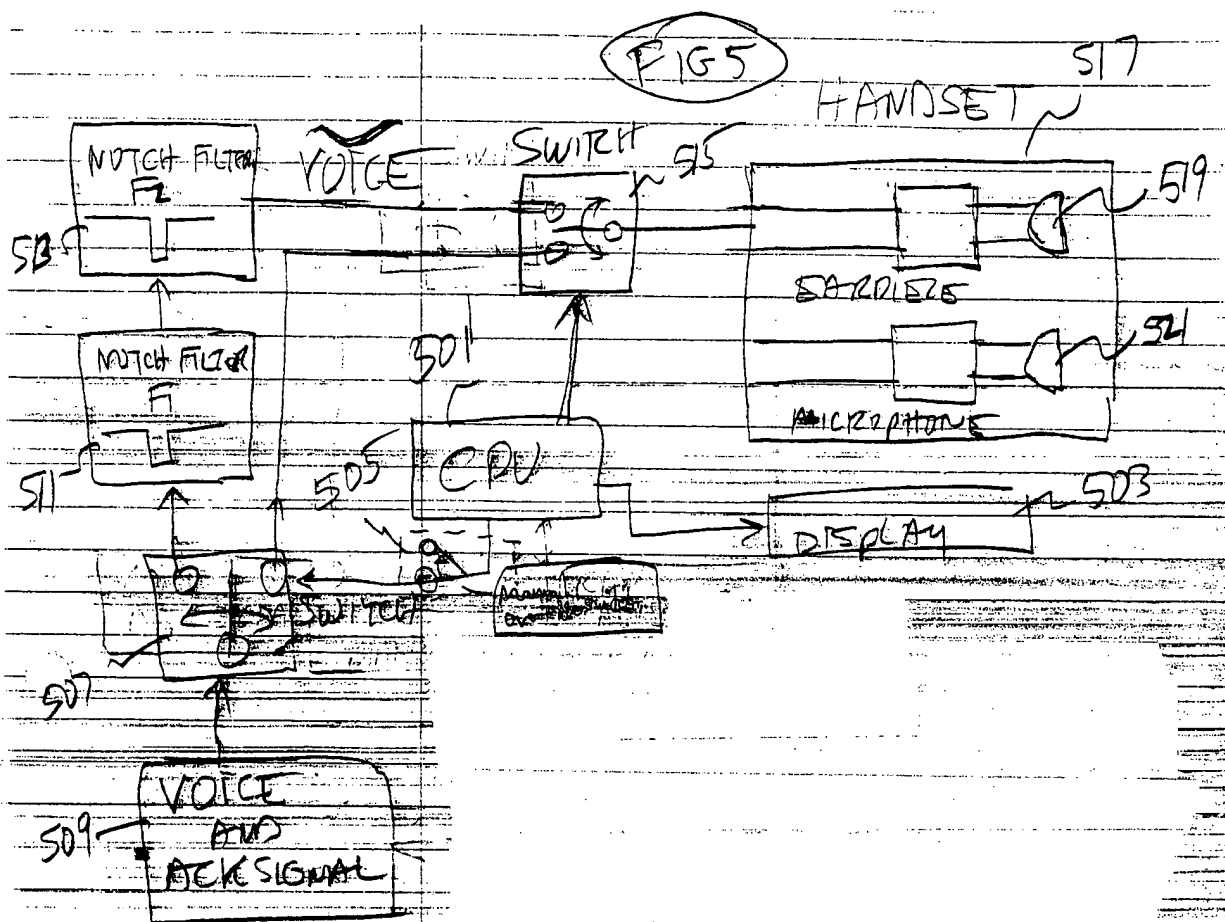 FIG 5
517
HANDSET
NOTCH FILTER
F2
VOICE
SWITCH
515
519
513
EARPIECE
NOTCH FILTER
F1
501
521
MICROPHONE
511
505
CPU
503
DISPLAY
SWITCH
507
VOICE
AND
ACK SIGNAL
509